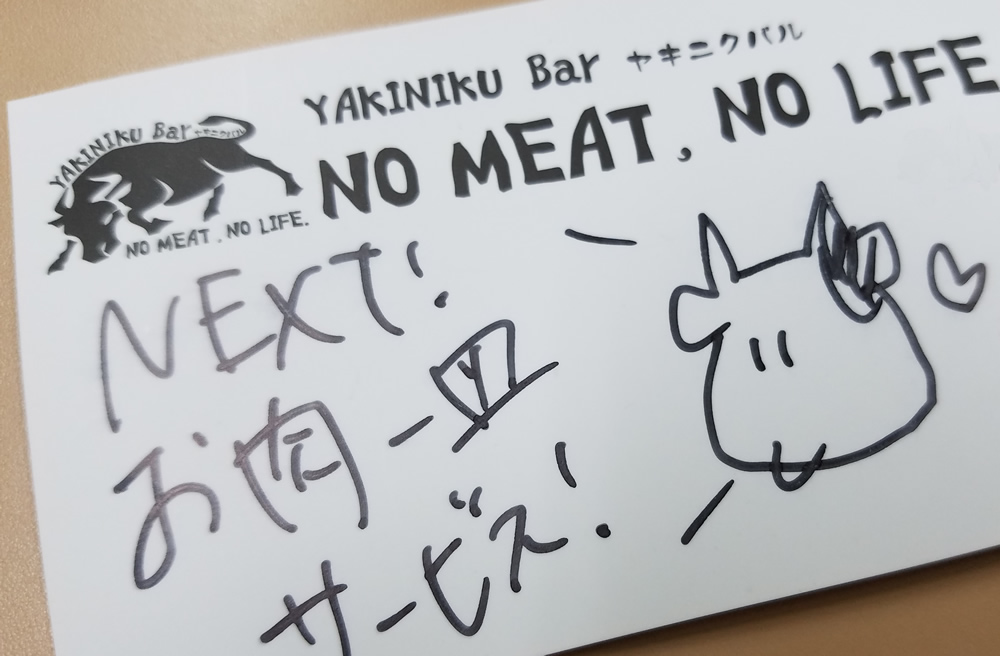 YAKINIKU Bar ヤキニクバル
NO MEAT, NO LIFE
YAKINIKU Bar ヤキニクバル
NO MEAT, NO LIFE.
NEXT!
お肉一皿
サービス!